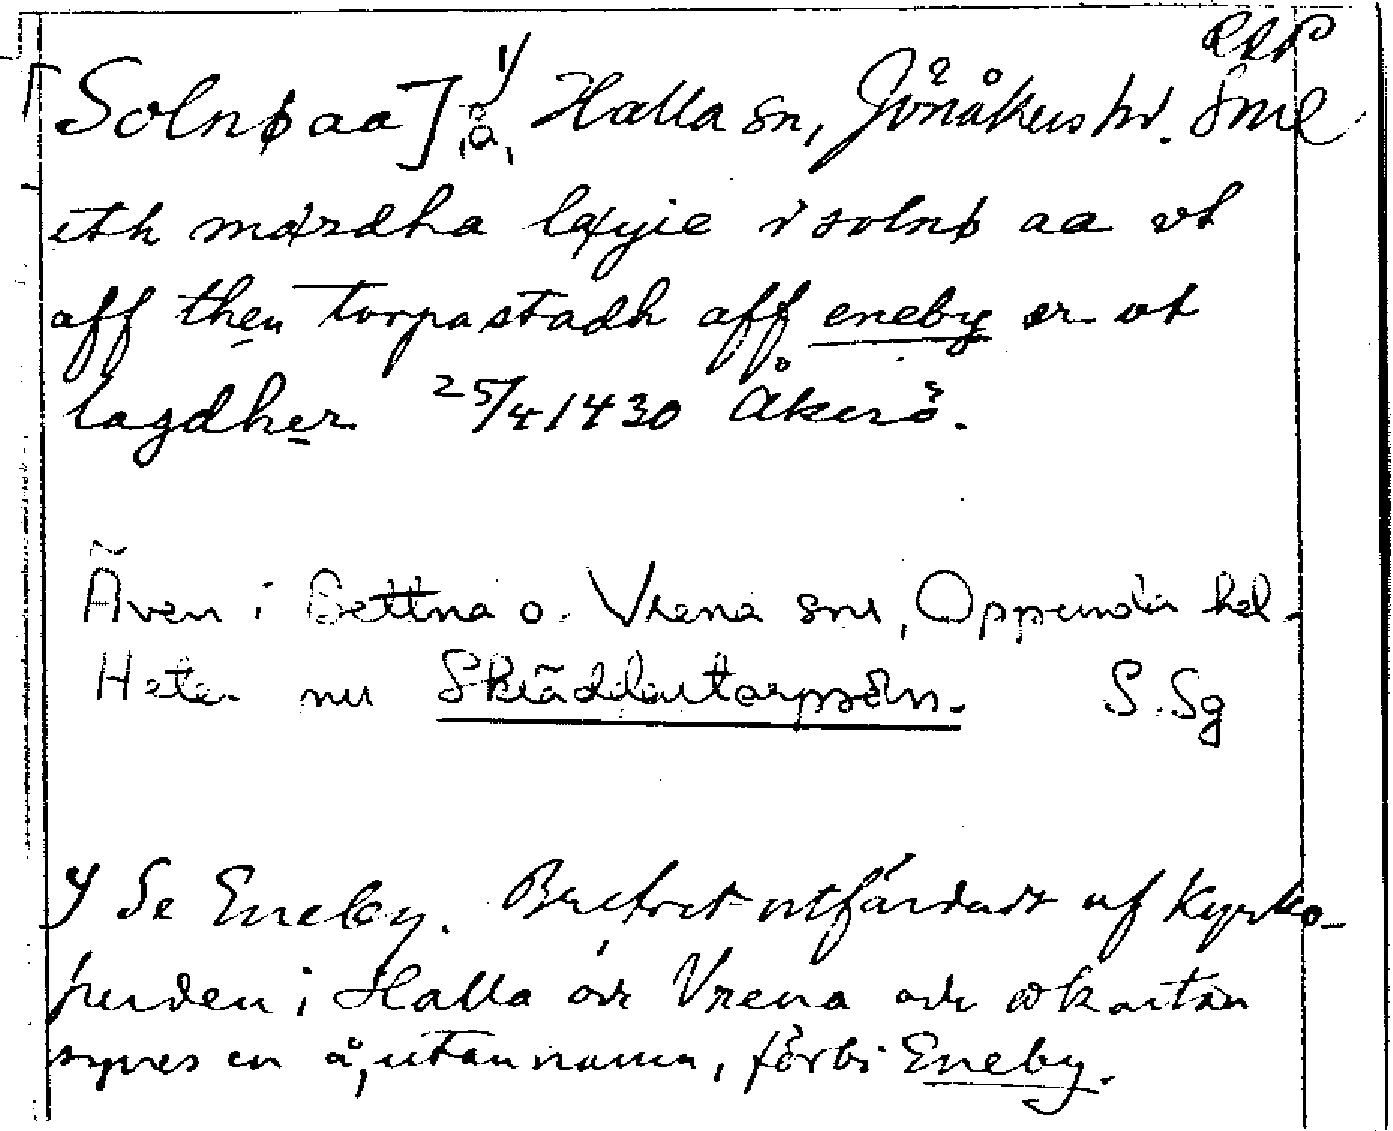 [Solnø aa] ¹⁾ å, Halla sn, Jönåkers hd. Sml
eth mardha läyie i solnø aa vt
aff then torpastadh aff eneby er vt
lagdher 25/4 1430 Åkerö.
Även i Bettna o. Vrena snr, Oppunda hd.
Heter nu Skräddartorpsån. S.Sg
1) Se Eneby. Brefvet utfärdadt af kyrko-
herden i Halla och Vrena och å kartan
synes en å, utan namn, förbi Eneby.